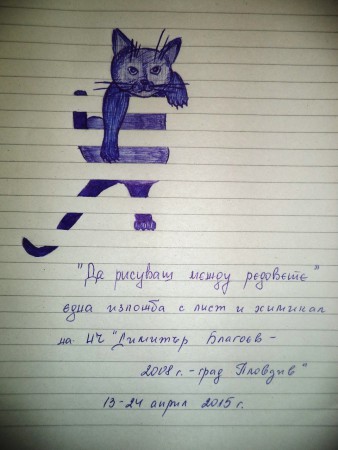 "Да рисуваш между редовете"
една изложба с лист и химикал
на НЧ "Димитър Благоев -
2008 г. - град Пловдив"
13-24 април 2015 г.